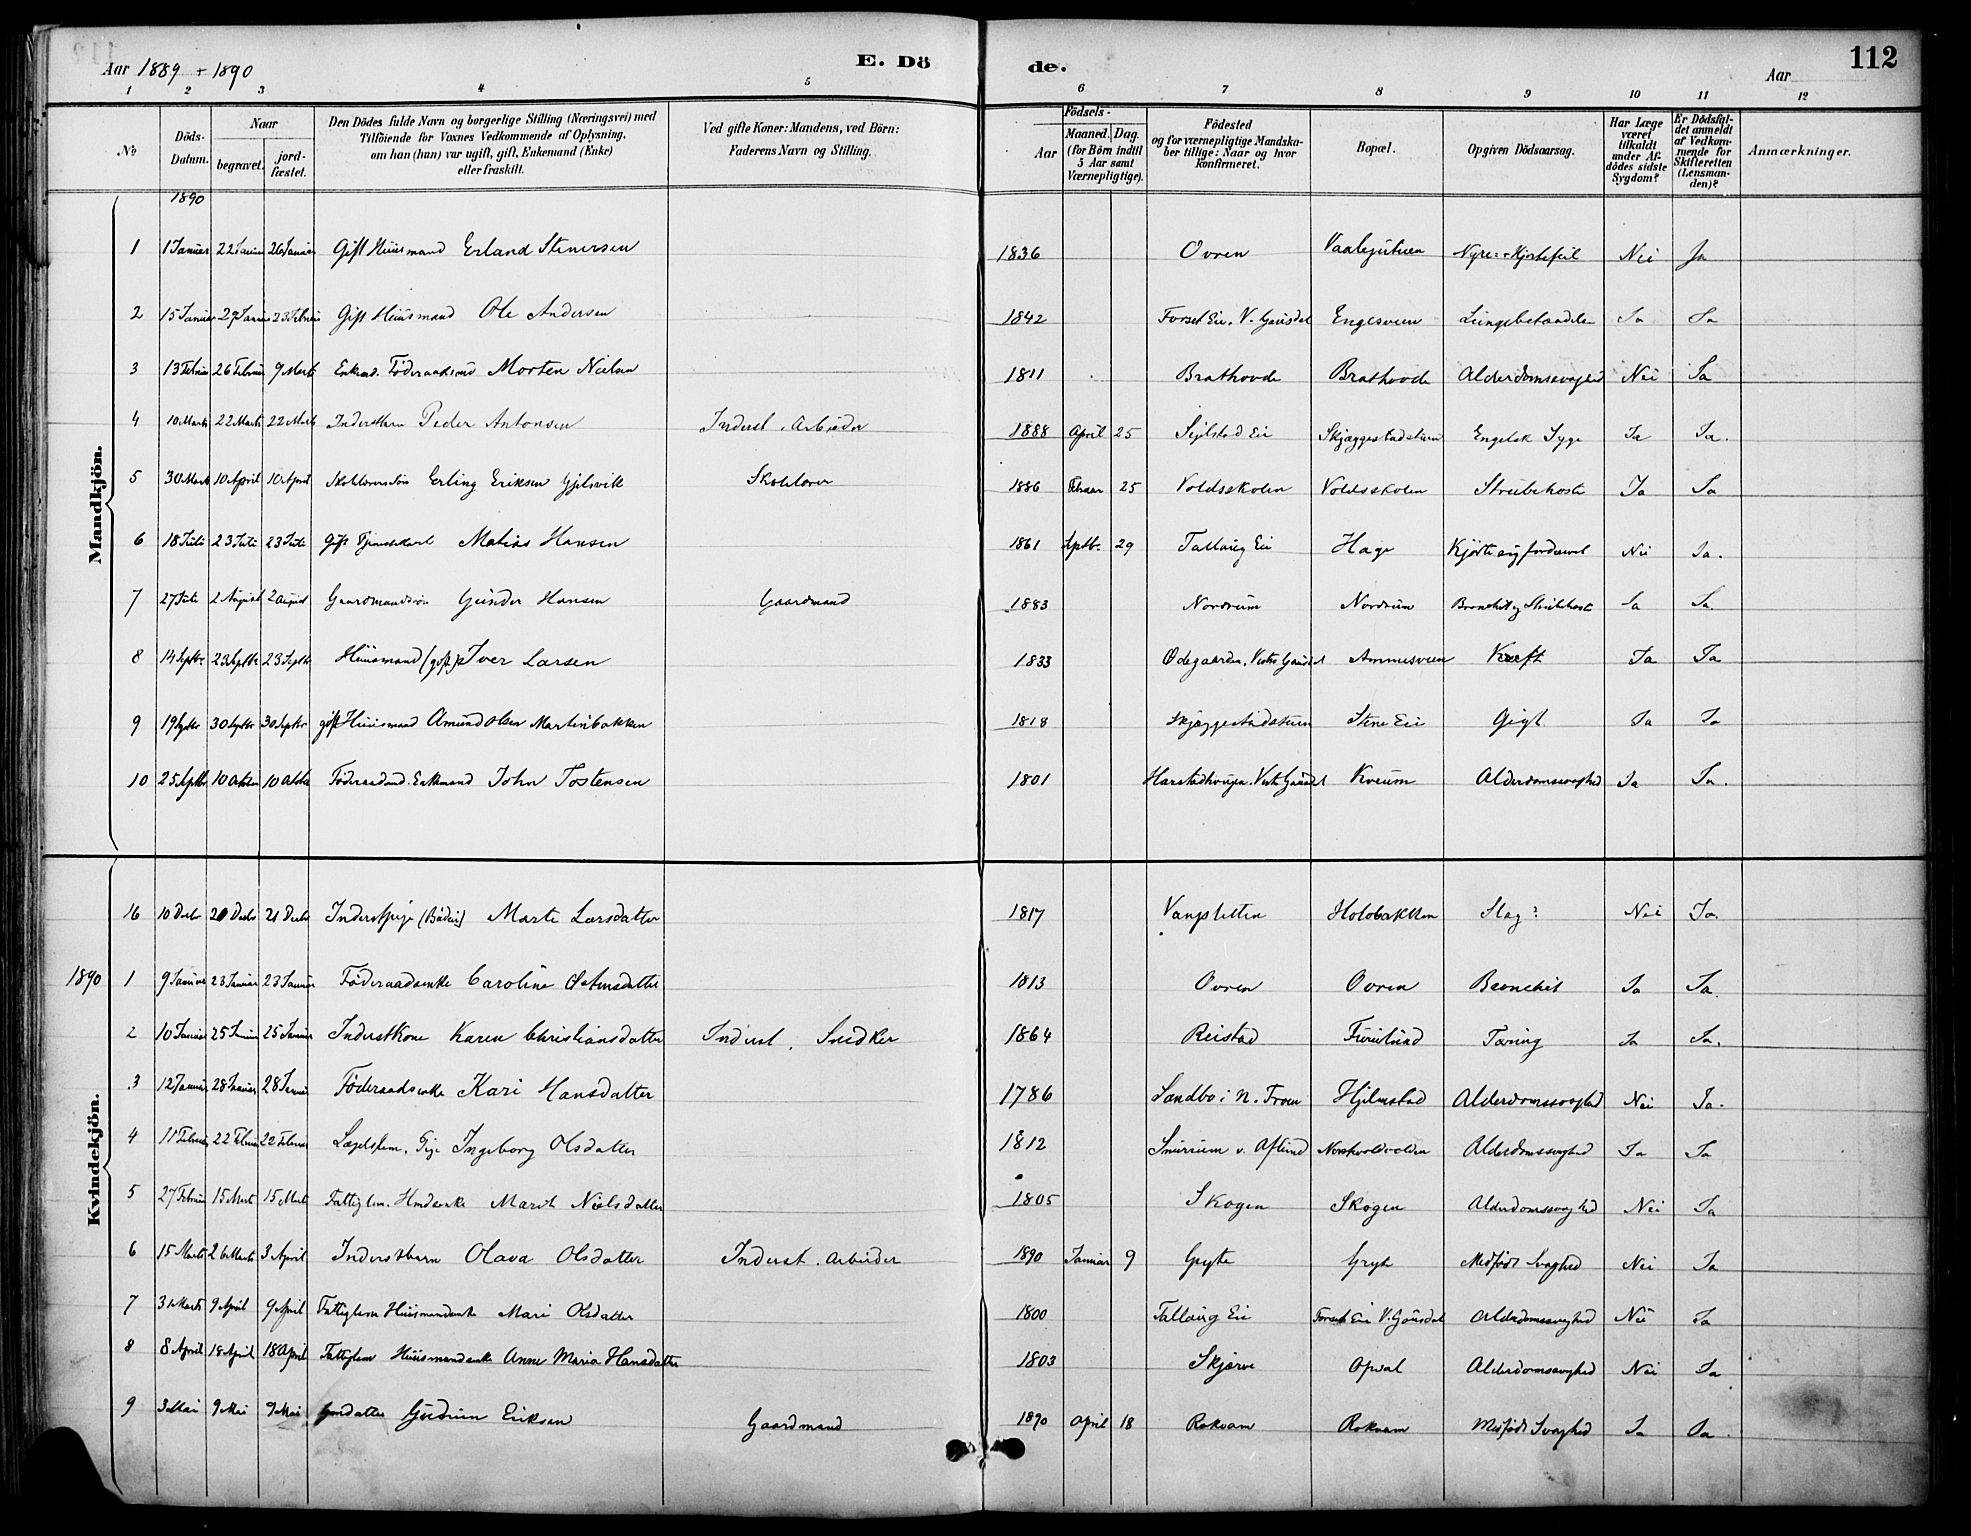 Aar 1889 + 1890 E. Dö de. Aar 112
1 2 3 4 5 6 7 8 9 10 11 12
No
Döds-Datum.
Naar
begravet.
jord-fæstet.
Den Dödes fulde Navn og borgerlige Stilling (Næringsvei) med
Tilföiende for Voxnes Vedkommende af Oplysning,
om han (hun) var ugift, gift, Enkemand (Enke)
eller fraskilt.
Ved gifte Koner: Mandens, ved Börn:
Faderens Navn og Stilling.
Födsels-
Aar
Maaned. Dag.
(for Börn indtil
5 Aar samt
Værnepligtige).
Födested
og for værnepligtige Mandska-
ber tillige: Naar og hvor
konfirmeret.
Bopæl.
Opgiven Dödsaarsag.
Har Læge
været
tilkaldt
under Af-
dödes sidste
Sygdom?
Er Dödsfal-
det anmeldt
af Vedkom-
mende for
Skifteretten
(Lensman-
den)?
Anmærkninger.
Mandkjön.
1890
1 1 Januar 22 Januar 26 Januar Gift Huusmand Erland Stenersen 1836 Ovren Nyre- + Hjertefeil Nei Ja
2 15 Januar 29 Januar 23 Februar Gift Huusmand Ole Andersen 1842 Forset Eie, V. Gausdal Engesveen Lungebetændelse Ja Ja
3 13 Februar 26 Februar 9 Marts Enkemd. Föderaadsmd Morten Nielsen 1811 Brathovde Brathovde Alderdomssvaghed Nei Ja
4 10 Marts 22 Marts 22 Marts Inderstbarn Peder Antonsen Inderst, Arbeider 1888 April 25 Sejlstad Eie Skjæggestadstuen Engelsk Syge Ja Ja.
5 30 Marts 10 April 10 April Skolelærersön Erling Eriksen Gjilsvik Skolelærer 1886 Februar 25 Voldsskolen Voldsskolen Strubehoste Ja Ja
6 18 Juli 23 Juli 23 Juli Gift Tjenestekarl Matias Hansen 1861 Septb. 29 Tallaug Eie Hage Nei Ja.
7 27 Juli 2 August 2 August Gaardmandssön Gunder Hansen Gaardmand 1883 Nordrum Nordrum Bronchit og Strubehoste Ja Ja.
8 14 Septbr 23 Septbr 23 Septbr Huusmand (gift) Iver Larsen 1833 Ödegaarden, Vestre Gausdal Ammesveen Kræft Ja Ja
9 19 Septbr 30 Septbr 30 Septbr gift Huusmand Amund Olsen Martinbakken 1818 Skjæggestadstuen Stene Eie Gigt Ja Ja
10 25 Septbr 10 Oktober 10 Oktbr Föderaadmd. Enkemand John Tostensen 1801 Harstadhaugen, Vestre Gausdal Kveum Alderdomssvaghed Ja Ja.
Kvindekjön.
16 10 Decbr 20 Decbr 21 Decbr Inderstpige (Budeie) Marte Larsdatter 1817 Vangsletten Holobakken Slag? Nei Ja.
1890 1 9 Januar 23 Januar 23 Januar Föderaadsenke Caroline Östensdatter 1813 Ovren Ovren Bronchit Ja Ja.
2 10 Januar 25 Januar 25 Januar Inderstkone Karen Christiansdatter Inderst, Snedker 1864 Reistad Furulund Tæring Ja Ja.
3 12 Januar 28 Januar 28 Januar Föderaadsenke Kari Hansdatter 1786 Sandbo i N. Fron Hjelmstad Alderdomssvaghed Nei Ja.
4 11 Februar 22 Februar 22 Februar Lægdslem, Pige Ingeborg Olsdatter 1812 Alderdomssvaghed Ja Ja
5 27 Februar 15 Marts 15 Marts Fattiglem. Marit Nielsdatter 1805 Skogen Skogen Alderdomssvaghed Nei Ja
6 15 Marts 26 Marts 3 April Inderstbarn Olava Olsdatter Inderst, Arbeider 1890 Januar 9 Gryte Gryte Medfödt Svaghed Nei Ja
7 31 Marts 9 April 9 April Fattiglem Huusmandsenke Mari Olsdatter 1800 Tallaug Eie Forset Eie V. Gausdal Alderdomssvaghed Nei Ja
8 8 April 18 April 18 April Fattiglem Huusmandsenke Anne Maria Hansdatter 1803 Skjærve Opsal Alderdomssvaghed Nei Ja
9 3 Mai 9 Mai 9 Mai Gudrun Eriksen Gaardmand 1890 April 18 Rokvam Rokvam Medfödt Svaghed Ja Ja.